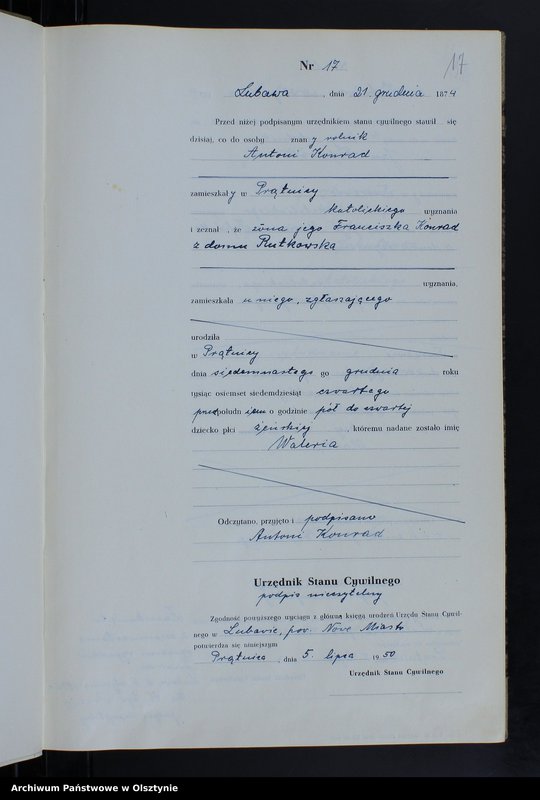 Nr 17
17
Lubawa, dnia 21. grudnia 1874
Przed niżej podpisanym urzędnikiem stanu cywilnego stawił się
dzisiaj, co do osoby znany rolnik
Antoni Konrad
zamieszkały w Prątnicy
katolickiego wyznania
i zeznał, że żona jego Franciszka Konrad
z domu Rutkowska
wyznania,
zamieszkała u niego, zgłaszającego
urodziła
w Prątnicy
dnia siedemnastego go grudnia roku
tysiąc osiemset siedemdziesiąt czwartego
przedpołudniem o godzinie pół do czwartej
dziecko płci żeńskiej, któremu nadane zostało imię
Waleria
Odczytano, przyjęto i podpisano
Antoni Konrad
Urzędnik Stanu Cywilnego
podpis nieczytelny
Zgodność powyższego wyciągu z główną księgą urodzeń Urzędu Stanu Cywil-
nego w Lubawie, pow. Nowe Miasto
potwierdza się niniejszym
Prątnica, dnia 5. lipca 1950
Urzędnik Stanu Cywilnego
Archiwum Państwowe w Olsztynie